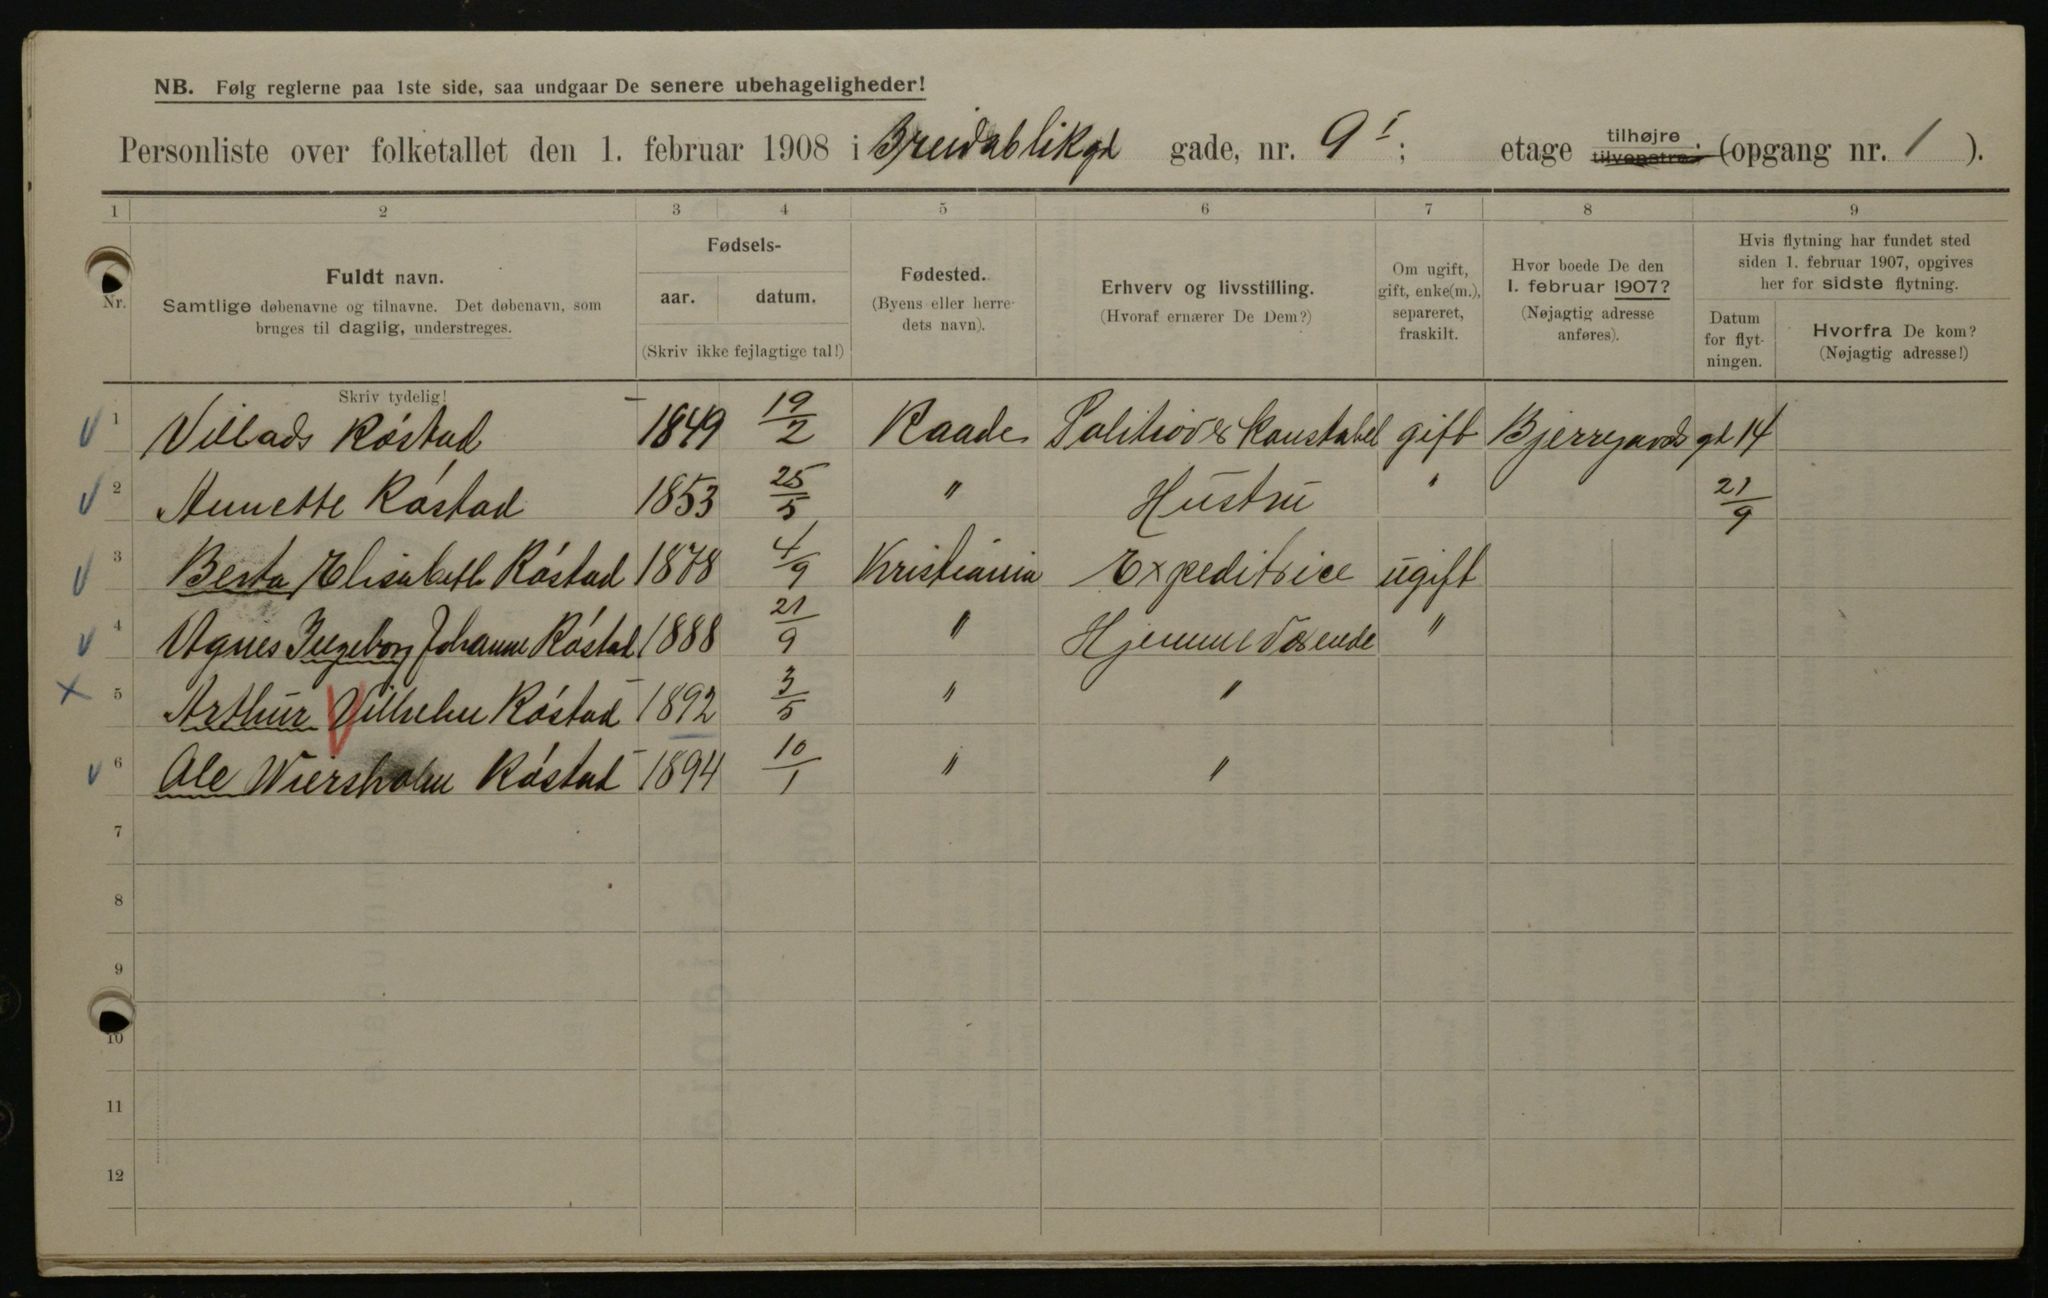 NB. Følg reglerne paa 1ste side, saa undgaar De senere ubehageligheder!
Personliste over folketallet den 1. februar 1908 i Breidablikgd gade, nr. 9 I; etage tilhøjre. tilvenstre. (opgang nr. 1 ).
1 2 3 4 5 6 7 8 9
Nr.
Fuldt navn.
Samtlige døbenavne og tilnavne. Det døbenavn, som
bruges til daglig, understreges.
Skriv tydelig!
Fødsels-
aar. datum.
(Skriv ikke fejlagtige tal!)
Fødested.
(Byens eller herre-
dets navn).
Erhverv og livsstilling.
(Hvoraf ernærer De Dem?)
Om ugift,
gift, enke(m.),
separeret,
fraskilt.
Hvor boede De den
1. februar 1907?
(Nøjagtig adresse
anføres).
Hvis flytning har fundet sted
siden 1. februar 1907, opgives
her for sidste flytning.
Datum
for flyt-
ningen.
Hvorfra De kom?
(Nøjagtig adresse!)
1 Villads Róstad 1849 19/2 Raade konstabel gift gt 14
2 Annette Róstad 1853 25/5 " Hustru " 21/9
3 Berta Elisabeth Róstad 1878 4/9 Kristiania Expeditrice ugift
4 Agnes Ingeborg Johanne Róstad 1888 21/9 " Hjemmeværende "
5 Arthur Vilhelm Róstad 1892 3/5 " "
6 Ole Wiersholm Róstad 1894 10/1 " "
7
8
9
10
11
12